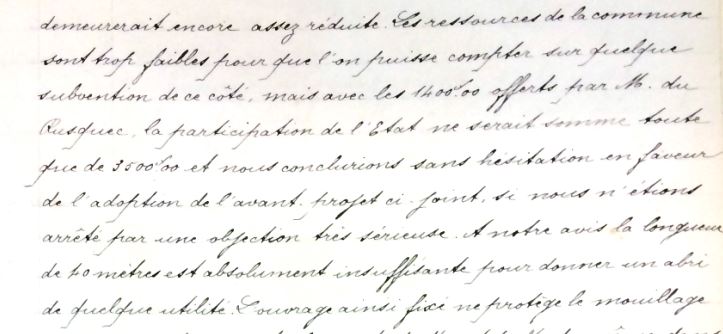 demeurerait encore assez réduite. Les ressources de la commune
sont trop faibles pour que l'on puisse compter sur quelque
subvention de ce côté, mais avec les 1400f00 offerts par M. du
Rusquec, la participation de l'Etat ne serait somme toute
que de 3500f00 et nous conclurions sans hésitation en faveur
de l'adoption de l'avant-projet ci-joint, si nous n'étions
arrêté par une objection très sérieuse. A notre avis la longueur
de 40 mètres est absolument insuffisante pour donner un abri
de quelque utilité. L'ouvrage ainsi fixé ne protège le mouillage